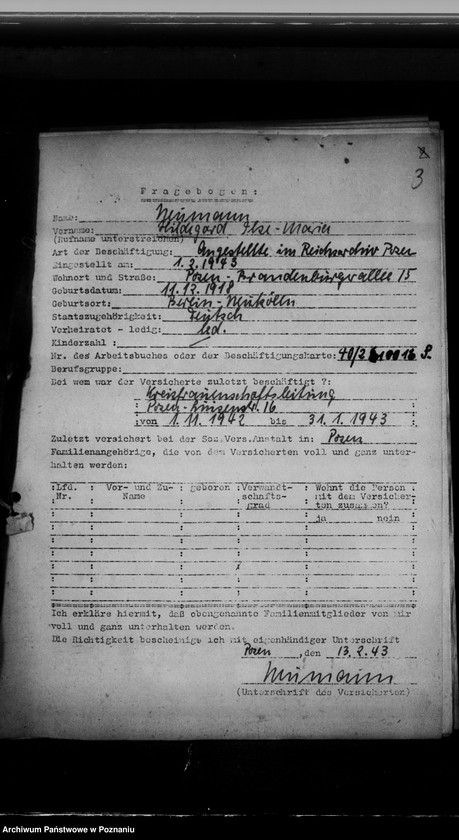 3
Fragebogen:
Name: Neumann
Vorname: Hildegard Ilse-Maria
(Rufname unterstreichen)
Art der Beschäftigung: Angestellte im Reichsarchiv Posen
Eingestellt am: 1.2.1943
Wohnort und Straße: Posen - Brandenburgerallee 15
Geburtsdatum: 11.12.1918
Geburtsort: Berlin-Neukölln
Staatszugehörigkeit: Deutsch
Verheiratet - ledig: led.
Kinderzahl :
Nr. des Arbeitsbuches oder der Beschäftigungskarte: 40/2
Berufsgruppe:
Bei wem war der Versicherte zuletzt beschäftigt ?:
Kreisfrauenschaftsleitung
Posen - Luisenstr. 16
von 1.11.1942 bis 31.1.1943
Zuletzt versichert bei der Soz.Vers.Anstalt in: Posen
Familienangehörige, die von dem Versicherten voll und ganz unter-
halten werden:
Lfd. Nr. : Vor- und Zu- Name : geboren : Verwandt- schafts- grad : Wohnt die Person mit dem Versicher- ten zusammen?
ja nein
Ich erkläre hiermit, das obengenannte Familienmitglieder von mir
voll und ganz unterhalten werden.
Die Richtigkeit bescheinige ich mit eigenhändiger Unterschrift
Posen, den 13.2.43
Neumann
(Unterschrift des Versicherten)
Archiwum Państwowe w Poznaniu